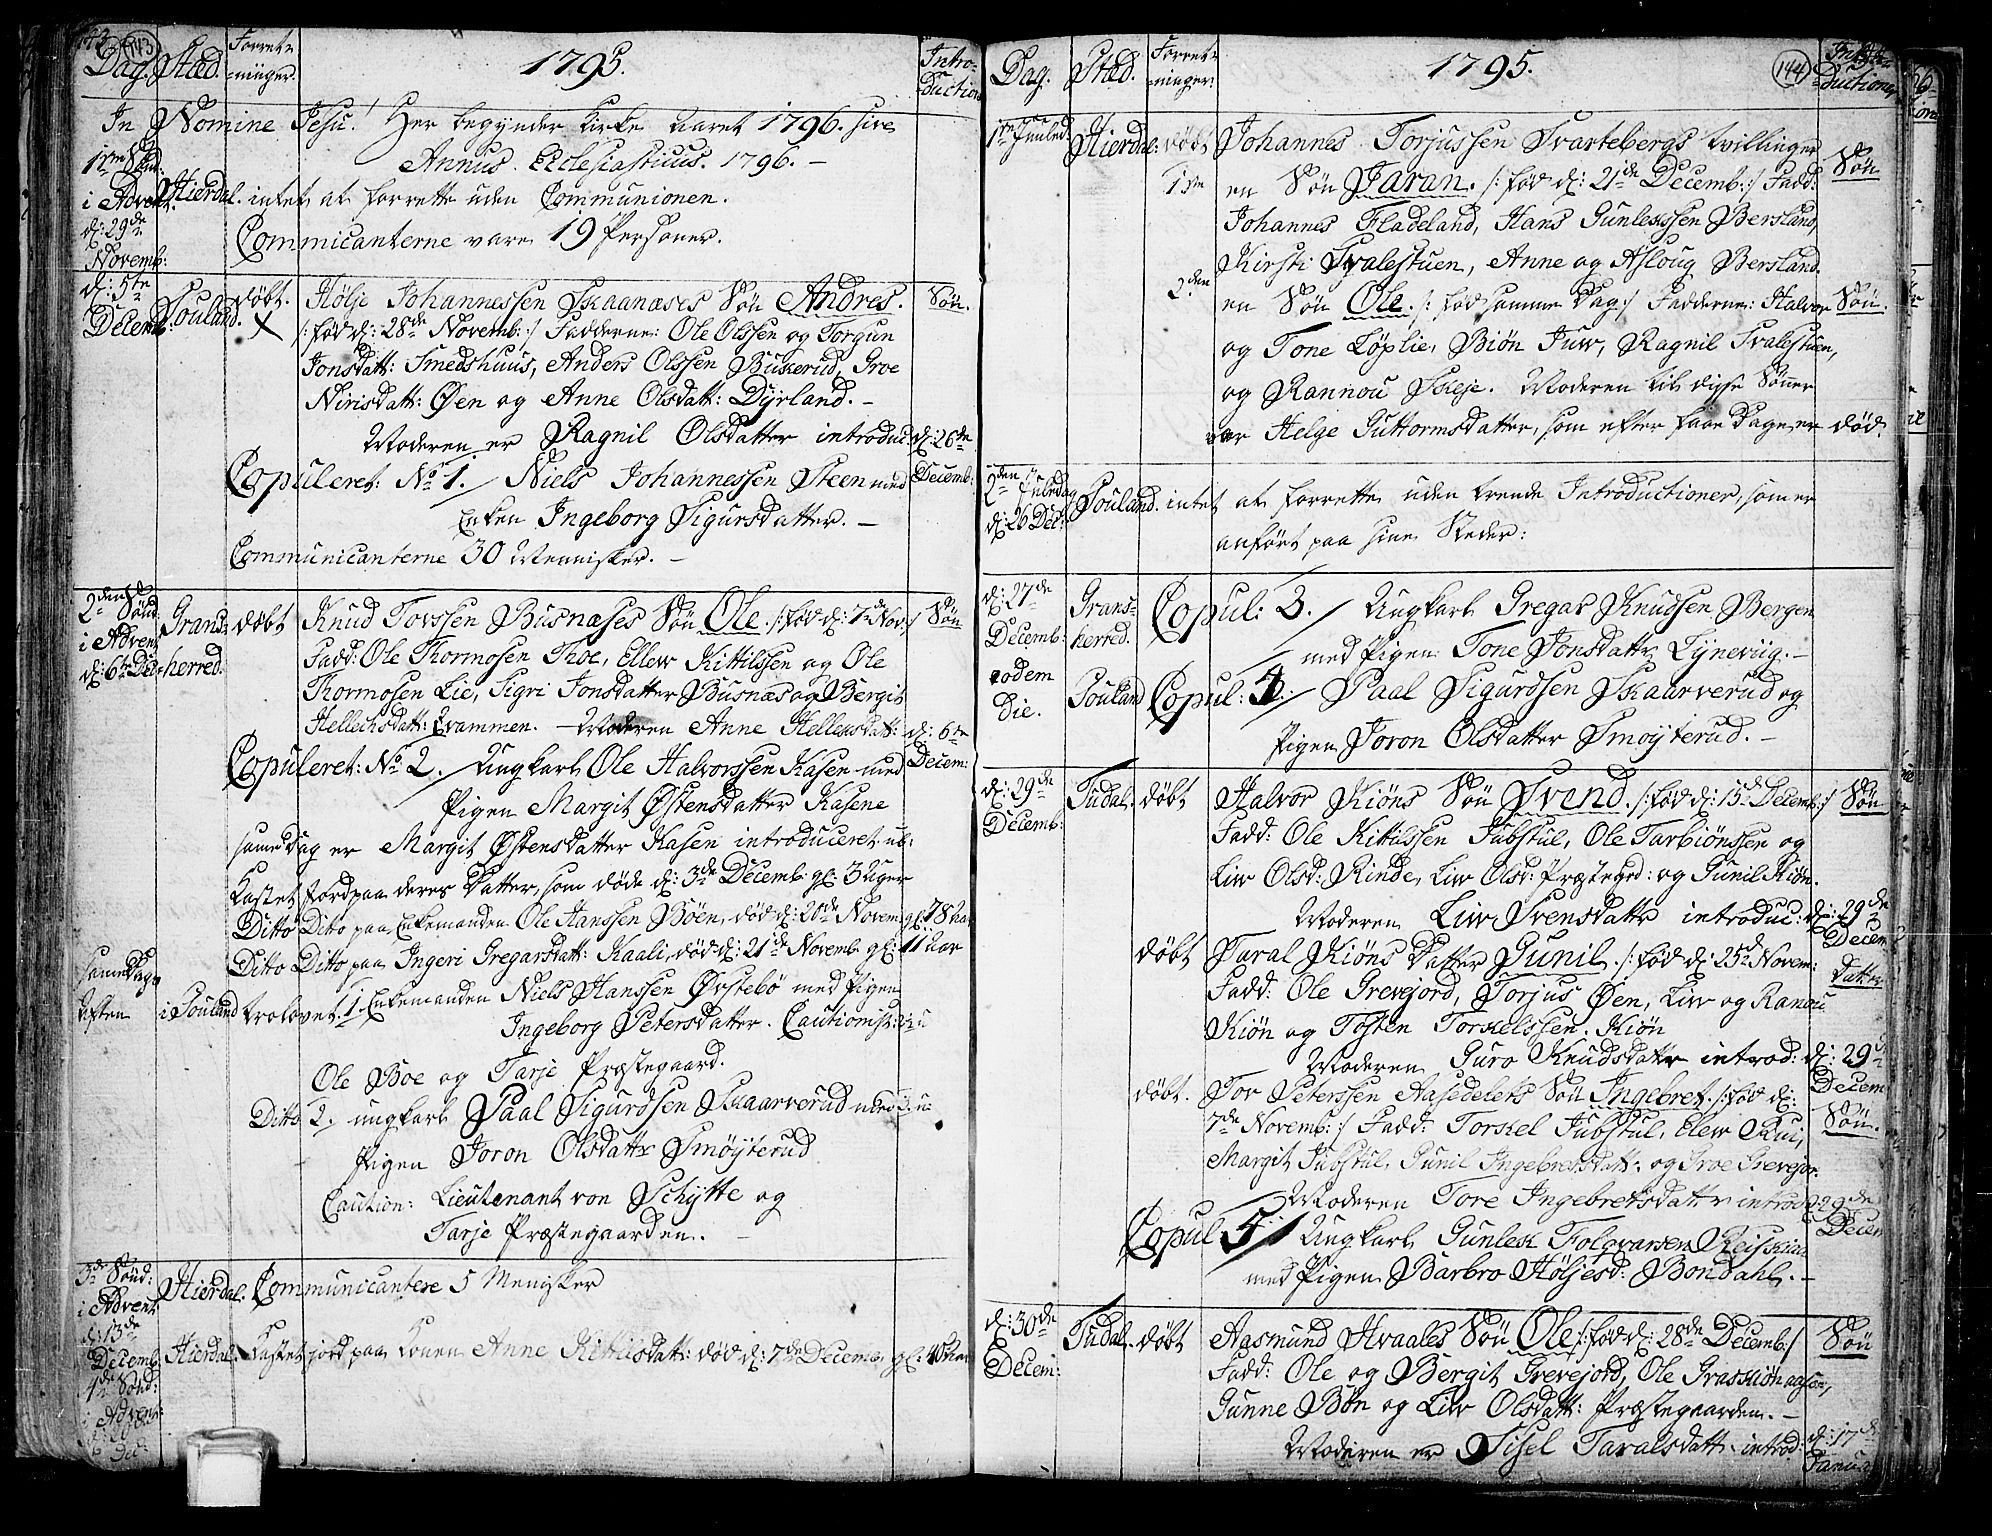 143
Dag. Stæd. Forret=
=ninger. 1795. Intro=
=ductioner
In Nomine Jesu! Her begynder Kirke Aaret 1796. sive
Annus Ecclesiasticus. 1796. -
1ste Sønd:
i Advent.
d: 29de
Novemb:
Hierdal. intet at forrette uden Communionen.
Commicanterne vare 19 Personer.
d: 5te
Decemb:
Souland. døbt. Hølje Johannessen Skaanæses Søn Andres. Søn.
X /: fød d: 28de Novemb: :/ Fadderne: Ole Olssen og Torgun
Jonsdatt: Smedshuus, Anders Olssen Buskerud, Groe
Nirisdatt: Øen og Anne Olsdatt: Dyrland. -
Moderen er Ragnil Olsdatter introduc: d: 26de
Decemb:
Copuleret: No 1. / Niels Johannessen Steen med
Enken Ingeborg Sigursdatter. -
Communicanterne 30 Mennisker. -
2den Sønd:
i Advent
d: 6te Dec=
Grans=
herred.
døbt Knud Torssen Busnæses Søn Ole. /: fød d: 7de Nov: / Søn
Fadd: Ole Thormosen Troe, Ellew Kittilssen og Ole
Thormosen Lie, Sigri Jonsdatter Busnæs og Bergit
Hellechsdatt: Qvammen. - Moderen Anne Helleksdatt: d: 6te
Decem:
Copuleret: No 2. / Ungkarl Ole Halvorssen Kasen med
Pigen Margit Østensdatter Kasene
samme Dag er Margit Østensdatter Kasen introduceret ub:
Kastet Jord paa deres Datter, som døde d: 3de Decemb: gl: 3 Uger
Ditto Ditto paa Enkemanden Ole Hanssen Bøen, død d: 20de Novem: gl: 78 Aar
Ditto Ditto paa Ingeri Gregarsdatt: Kaali, død d: 21de Novemb: gl: 11 Aar
samme Dags
Aften i Souland trolovet. 1. Enkemanden Niels Hanssen Ørstebö med Pigen
Ingeborg Petersdatter. Cautionist:
Ole Boe og Tarje Præstegaard.
Ditto 2. ungkarl Paal Sigurdsen Skaarverud med
Pigen Joron Olsdattr Smøyterud
Caution: Lieutenant von Schytte og
Tarje Præstegaarden. -
3de Sønd:
i Advent
d: 13de
Decemb
Hierdal. Communicantere 5 Menisker
Hierdal. Kastet jord paa Konen Anne Kittilsdatt: død d: 7de Decemb: gl: 40 Aar
4de Sønd:
i Advent
144
Dag. Stæd. Forret=
=ninger: 1795. Intro=
=ductioner
1ste Juuled. Hierdal: døbt Johannes Torjussen Svartebergs tvillinger
1ste en Søn Jaran. /: fød d: 21de Decemb: :/ Fadd: Søn
Johannes Fladeland, Hans Gunlekssen Bersland,
Kirsti Svalestuen, Anne og Asloug Bersland.
2den en Søn Ole. /: fød samme Dag :/ Fadderne: Halvor Søn.
og Tone Løplie, Biøn Juw, Ragnil Svalestuen,
og Rannou Skeje. Moderen til disse Sønner
var Helge Guttormsdatter, som efter faae Dage er død.
2den Juledag
d: 26 Dec: Souland. intet at forrette uden trende Introductioner, som er
anført paa sine Steder:
d: 27de
Decemb:
Grans=
herred.
Copul: 3. / Ungkarl Gregar Knudsen Bergen
med Pigen Tone Jonsdattr Lynevüg. -
eodem
die. Souland Copul: 4. / Paal Sigurdsen Skaarverud og
Pigen Joron Olsdatter Smøyterud. -
d: 29de
Decemb:
Tudal. døbt Halvor Kiöns Søn Svend. /: fød d: 15de Decemb: :/ Søn
Fadd: Ole Kittilssen Jübstul, Ole Tarbiönssen og
Liw Olsd: Rinde, Liw Olsd: Præsteged: og Gunil Kiön.
Moderen Liw Svensdattr introduc: d: 29de
Decem
døbt Taral Kiöns Datter Gunil. /: fød d: 25de Novem: Datter
Fadd: Ole Grevejord, Torjus Øen, Liw og Ranou
Kiön og Tosten Torkelssen Kiön
Moderen Guro Knudsdattr introd: d: 29de
Decem
døbt. Tor Peterssen Aasedelets Søn Ingebret. /: fød d: Søn.
7de Novemb: :/ Fadd: Torkel Jübstul, Elew Rui,
Margit Jübstul, Gunil Ingebretsdatt: og Groe Grevejor.
Moderen Tore Ingebretsdattr introd: 29de
Decem
Copul 5. / Ungkarl Gunlek Folqvarsen Reiskiaa
med Pigen Barbro Høljesd: Bondahl. -
d: 30de
Decem:
Tudal. døbt Aasmund Hvaales Søn Ole /: fød d: 28de Decemb: / Søn
Fadd: Ole og Bergit Grevejord, Ole Graskiönaasen,
Gunne Bön og Liw Olsdatt: Præstegaarden. -
Moderen er Sisel Taralsdatt: introd: d: 17de
Januar